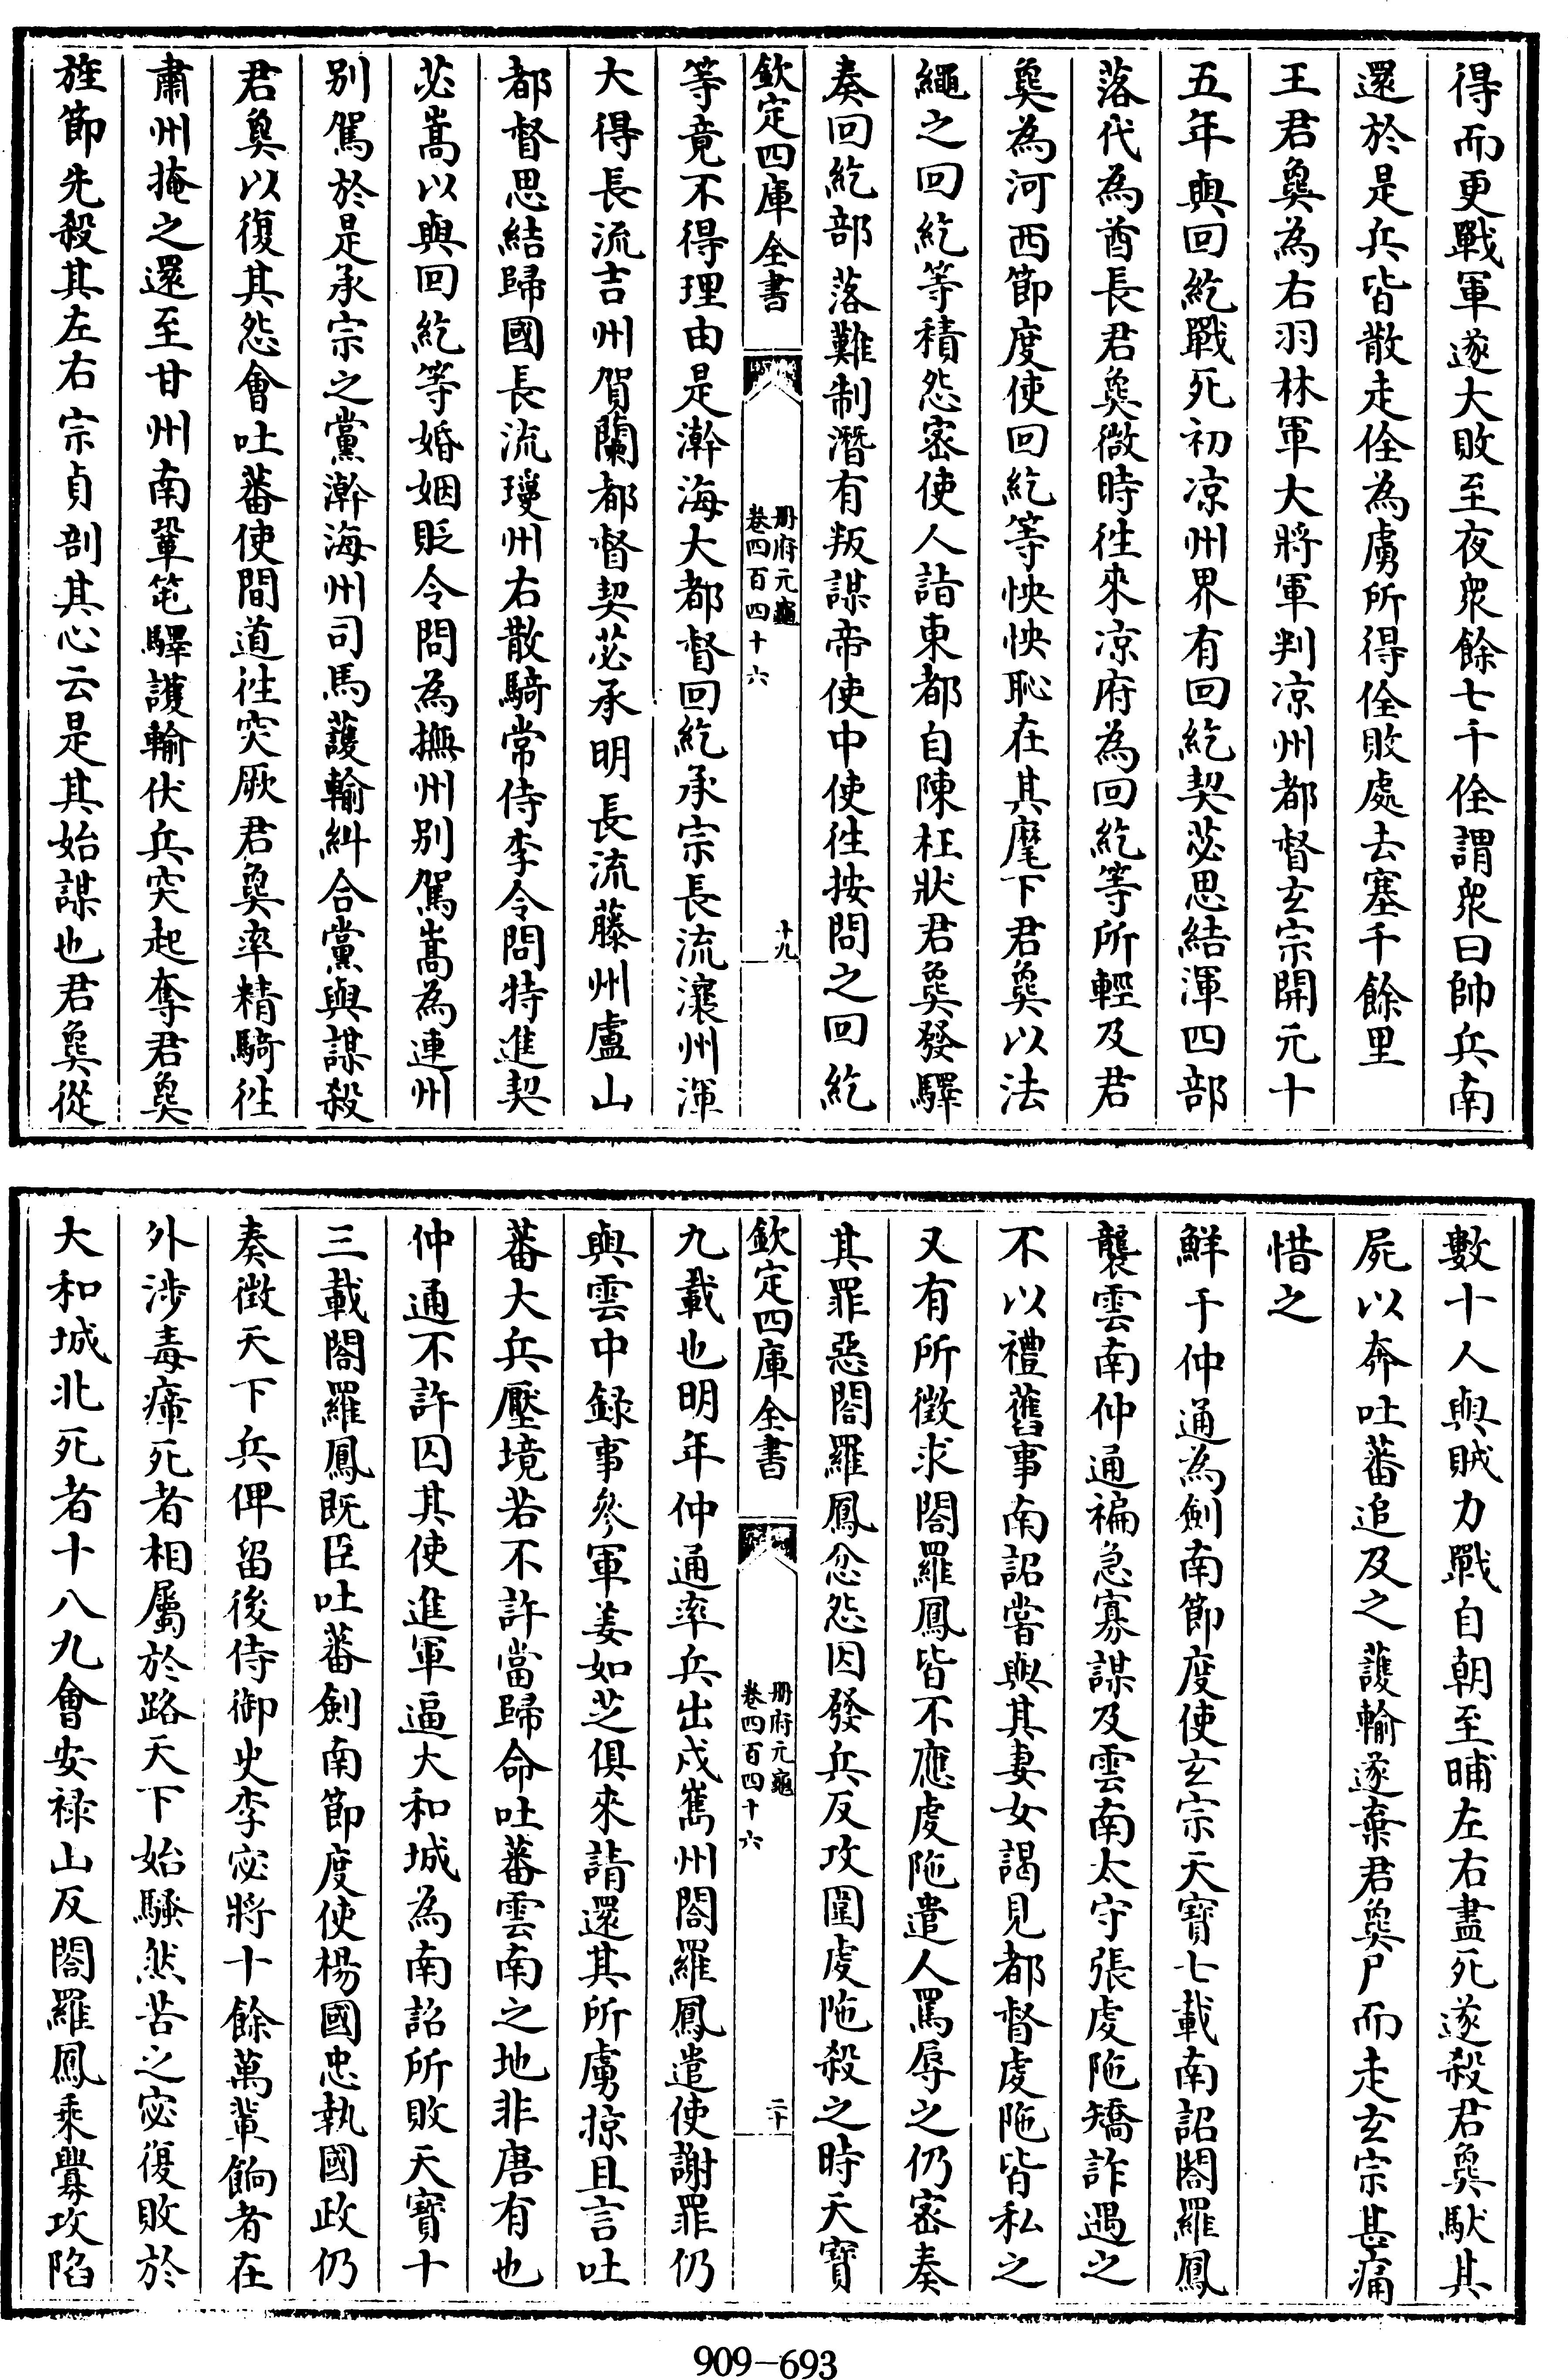 得而更戰軍遂大敗至夜衆餘七千佺謂衆曰帥兵南
還於是兵皆散走佺為虜所得佺敗處去塞千餘里
王君㚟為右羽林軍大將軍判凉州都督玄宗開元十
五年與回紇戰死初凉州界有回紇契苾思結渾四部
落代為酋長君㚟微時往來凉府為回紇等所輕及君
㚟為河西節度使回紇等怏怏恥在其麾下君㚟以法
繩之回紇等積怨密使人詣東都自陳枉狀君㚟發驛
奏回紇部落難制潛有叛謀帝使中使往按問之回紇
欽定四庫全書
册府元龜
卷四百四十六
十九
等竟不得理由是瀚海大都督回紇承宗長流瀼州渾
大得長流吉州賀蘭都督契苾承明長流藤州盧山
都督思結歸國長流瓊州右散騎常侍李令問特進契
苾嵩以與回紇等婚姻貶令問為撫州别駕嵩為連州
别駕於是承宗之黨瀚海州司馬護輸糾合黨與謀殺
君㚟以復其怨會吐蕃使間道往突厥君㚟率精騎往
肅州掩之還至甘州南鞏筆驛護輸伏兵突起奪君㚟
旌節先殺其左右宗貞剖其心云是其始謀也君㚟從
數十人與賊力戰自朝至晡左右盡死遂殺君㚟馱其
屍以奔吐蕃追及之護輸遂棄君㚟尸而走玄宗甚痛
惜之
鮮于仲通為劍南節度使玄宗天寶七載南詔閤羅鳳
襲雲南仲通褊急寡謀及雲南太守張虔陁矯詐遇之
不以禮舊事南詔嘗與其妻女謁見都督虔陁皆私之
又有所徵求閤羅鳳皆不應虔陁遣人罵辱之仍密奏
其罪惡閤羅鳳忿怨因發兵反攻圍虔陁殺之時天寶
欽定四庫全書
册府元龜
卷四百四十六
二十
九載也明年仲通率兵出戍嶲州閤羅鳳遣使謝罪仍
與雲中録事參軍姜如芝俱來請還其所虜掠且言吐
蕃大兵壓境若不許當歸命吐蕃雲南之地非唐有也
仲通不許囚其使進軍逼大和城為南詔所敗天寶十
三載閤羅鳳既臣吐蕃劍南節度使楊國忠執國政仍
奏徵天下兵俾留後侍御史李宓將十餘萬輩餉者在
外涉毒瘴死者相屬於路天下始騷然苦之宓復敗於
大和城北死者十八九會安禄山反閤羅鳳乘釁攻陷
909-693